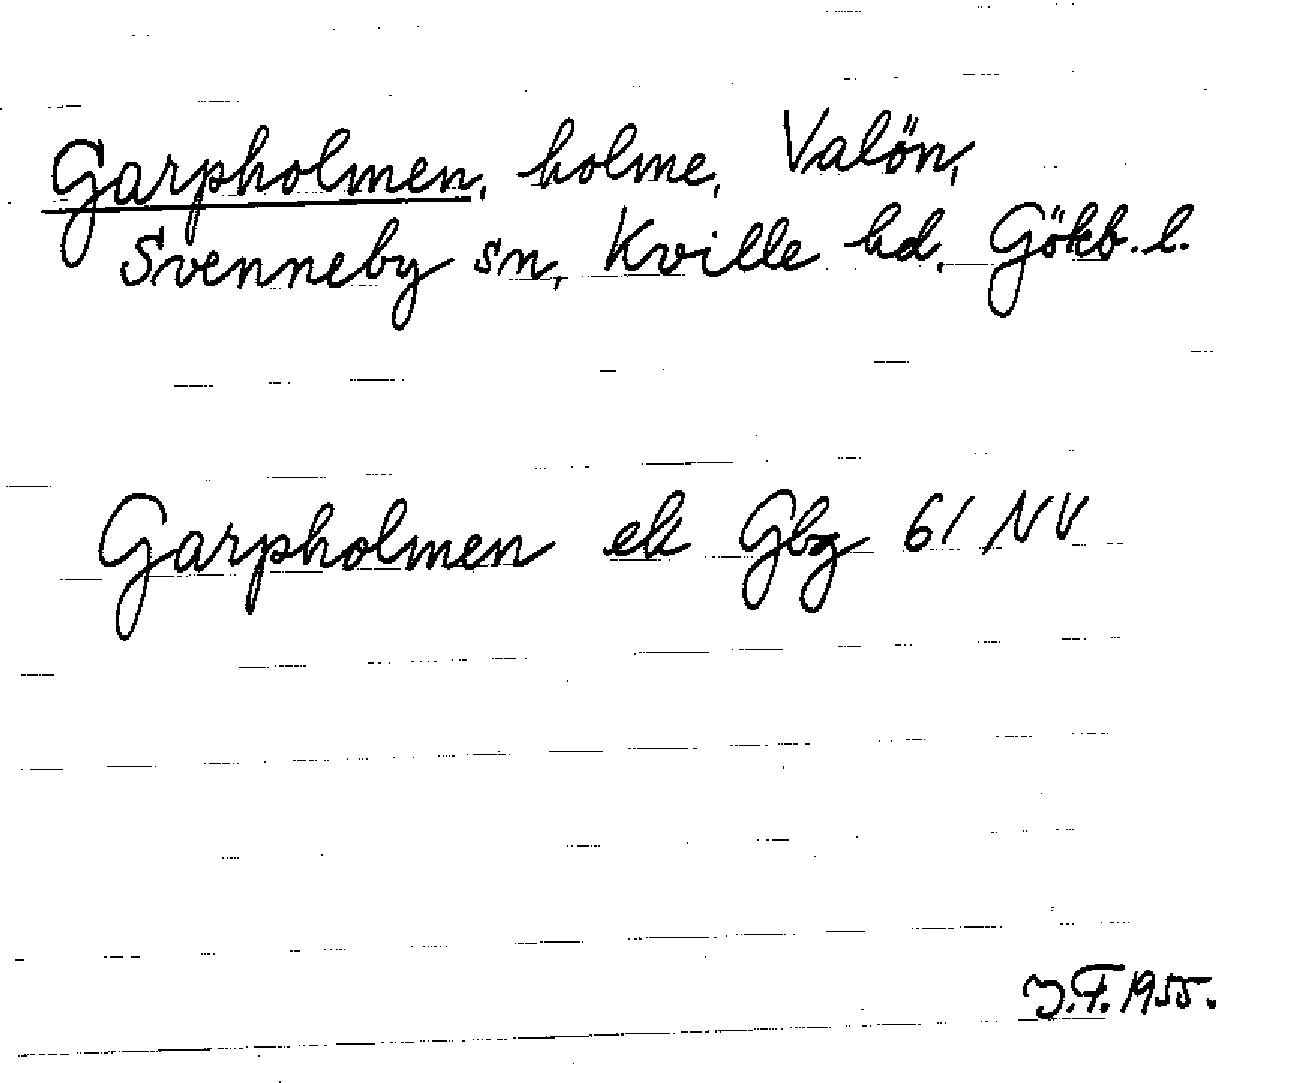 Garpholmen, holme, Valön,
Svenneby sn, Kville hd. Gökb. l.
Garpholmen ek Gbg 61 NV
J.F. 1955.